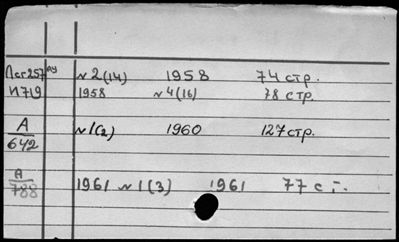 №2(14) 1958 74 стр.
И 719 1958 №4(16) 78 стр.
А
642 №1(2) 1960 127 стр.
А
788 1961 №1(3) 1961 77 с т.